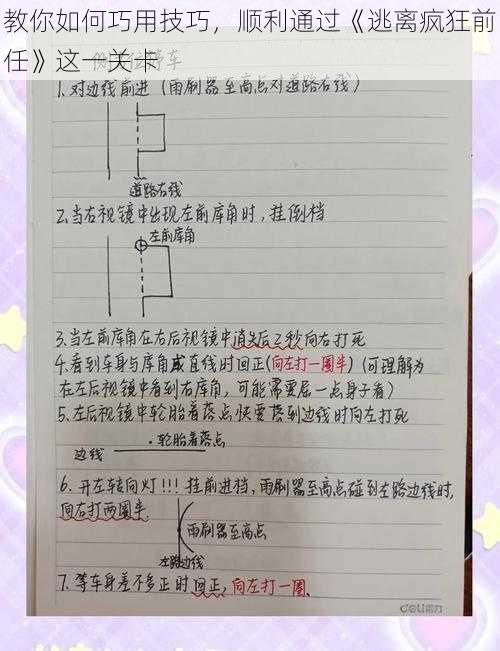 教你如何巧用技巧，顺利通过《逃离疯狂前
任》这一关卡
停车
1.对边线前进（雨刷器至高点对道路右线）
道路右线
2.当右视镜中出现左前库角时，挂倒档
左前库角
3.当左前库角在右后视镜中消失后2秒向右打死
4.看到车身与库角成直线时回正(向左打一圈半)(可理解为
在左后视镜中看到右库角，可能需要屈一点身子看)
5.左后视镜中轮胎着落点快要落到边线时向左打死
轮胎着落点
边线
6.开左转向灯!!!挂前进档，雨刷器至高点碰到左路边线时,
向右打两圈半
雨刷器至高点
左路边线
7.等车身差不多正时回正，向左打一圈、
deli得力